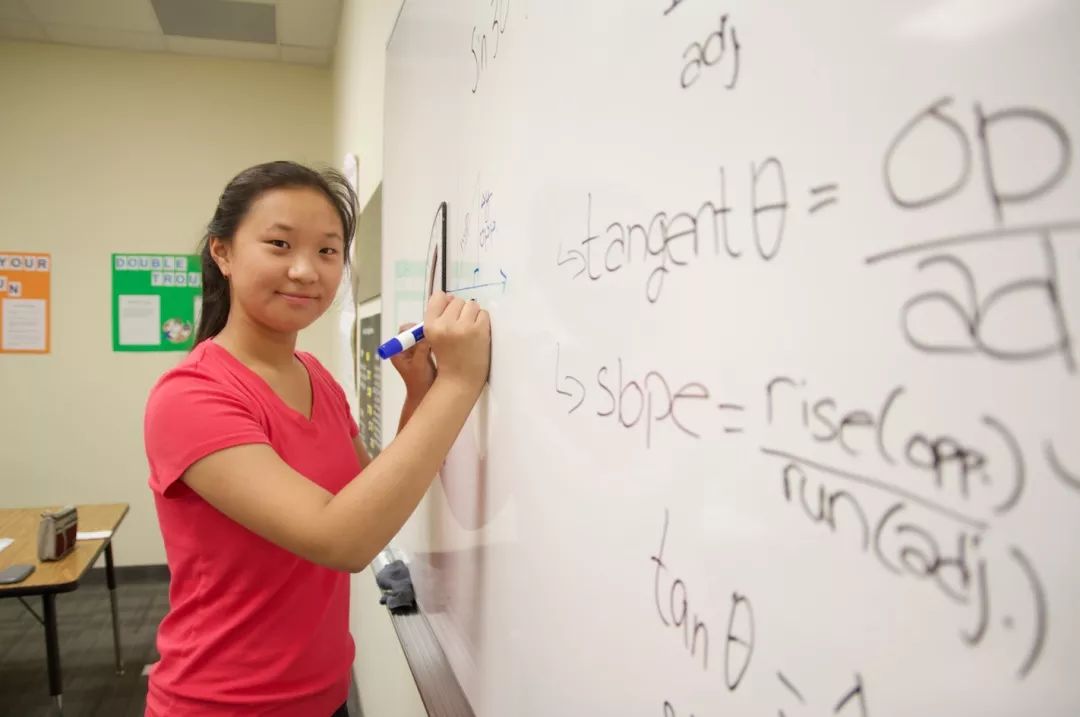 YOUR
DOUBLE
TROU
sin 30
adj
↳tangent θ = op
ad
↳ slope = rise(opp.)
run(adj.)
tan θ